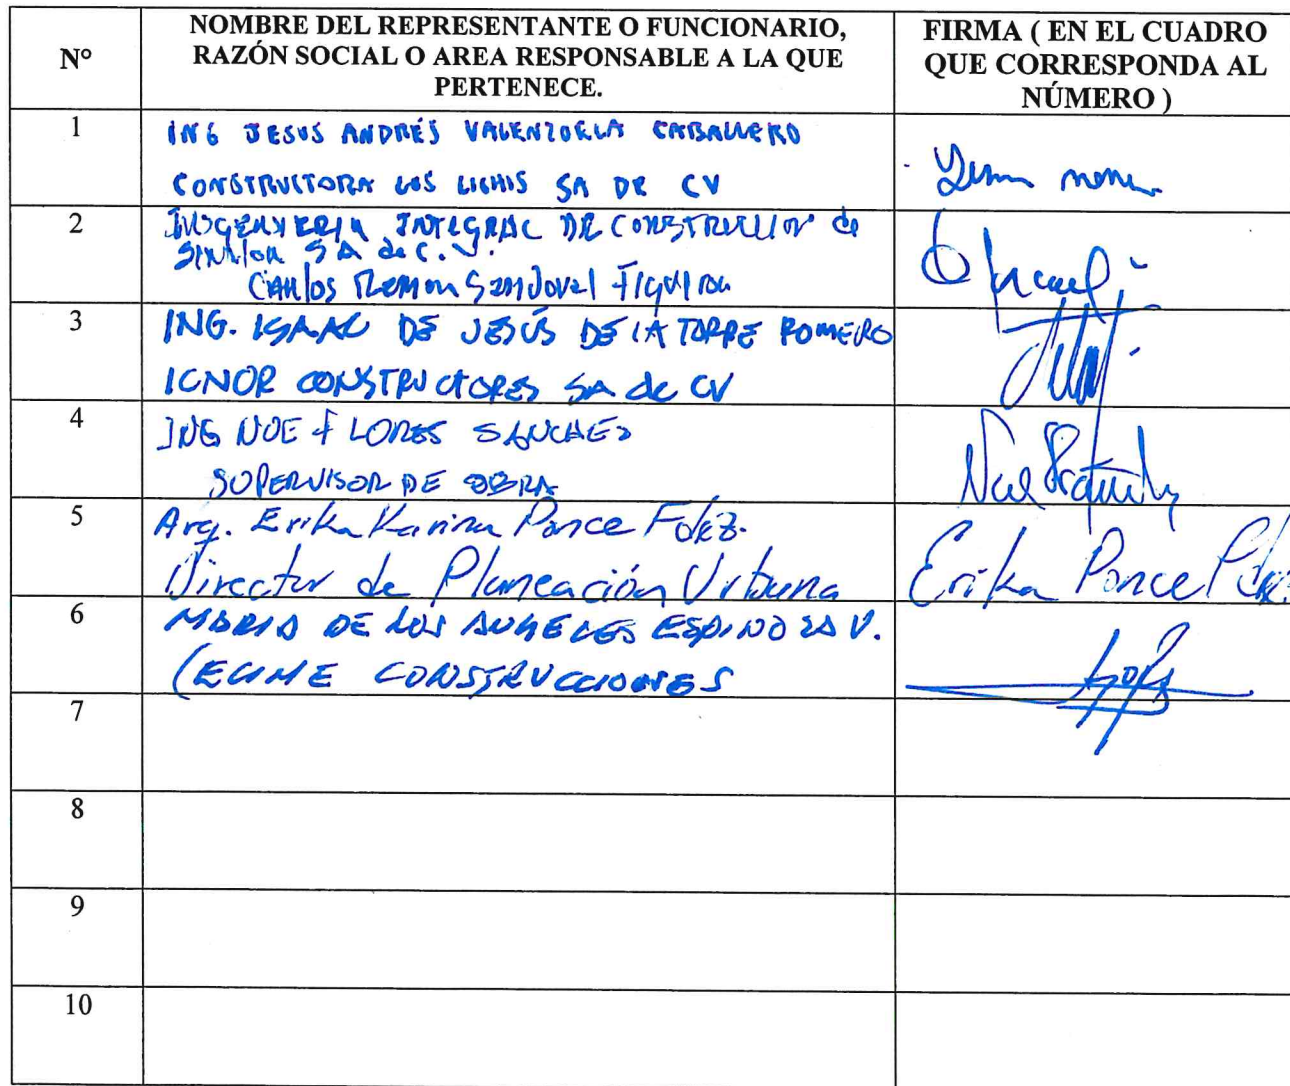 N°
NOMBRE DEL REPRESENTANTE O FUNCIONARIO,
RAZÓN SOCIAL O AREA RESPONSABLE A LA QUE
PERTENECE.
FIRMA ( EN EL CUADRO
QUE CORRESPONDA AL
NÚMERO )
1
ING JESUS ANDRÉS VALENZUELA CABALLERO
CONSTRUCTORA LOS LICHIS SA DE CV
2
INGENIERIA INTEGRAL DE CONSTRUCCION de
SINALOA SA de C.V.
CARLOS Ramon Sandoval Figueroa
3
ING. ISAAC DE JESÚS DE LA TORRE ROMERO
ICNOR CONSTRUCTORES SA de CV
4
ING NOE FLORES SANCHEZ
SUPERVISOR DE OBRA
5
Arq. Erika Karina Ponce Fdez.
Director de Planeación Urbana
Erika Ponce
6
MARIA DE LOS ANGELES ESPINOZA V.
CONSTRUCCIONES
7
8
9
10